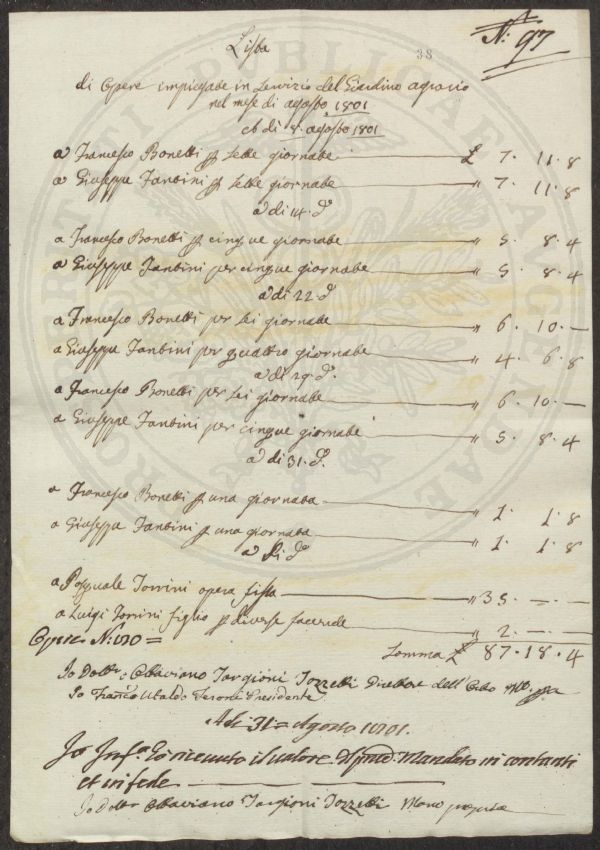 N. 97
38
Lista
di Opere impiegate in Servizio del Giardino agrario
nel mese di agosto 1801
a di 8. agosto 1801
a Francesco Bonelli p sette giornate £ 7. 11. 8
a Giuseppe Fantini p sette giornate " 7. 11. 8
a di 14. do
a Francesco Bonelli p cinque giornate " 5. 8. 4
a Giuseppe Fantini per cinque giornate " 5. 8. 4
a di 22. do
a Francesco Bonelli per sei giornate " 6. 10. —
a Giuseppe Fantini per quattro giornate " 4. 6. 8
a di 29. do.
a Francesco Bonelli per sei giornate " 6. 10. —
a Giuseppe Fantini per cinque giornate " 5. 8. 4
a di 31. do.
a Francesco Bonelli p una giornata " 1. 1. 8
a Giuseppe Fantini p una giornata " 1. 1. 8
a di do
a Pasquale Torrini opera fissa " 35. — . —
a Luigi Torrini figlio p diverse faccende " 2. — . —
Opere N:
Somma £ 87. 18. 4
Io Dottr. Ottaviano Targioni Tozzetti Direttore dell'Orto
Io Franco Ubaldo Feroni Presidente
A di 31 = Agosto 1801.
Io ricevuto il valore Mandato in contanti
et in fede
Io Dottr Ottaviano Targioni Tozzetti Mano propria
PROPERTI PUBLICAE AGENDAE